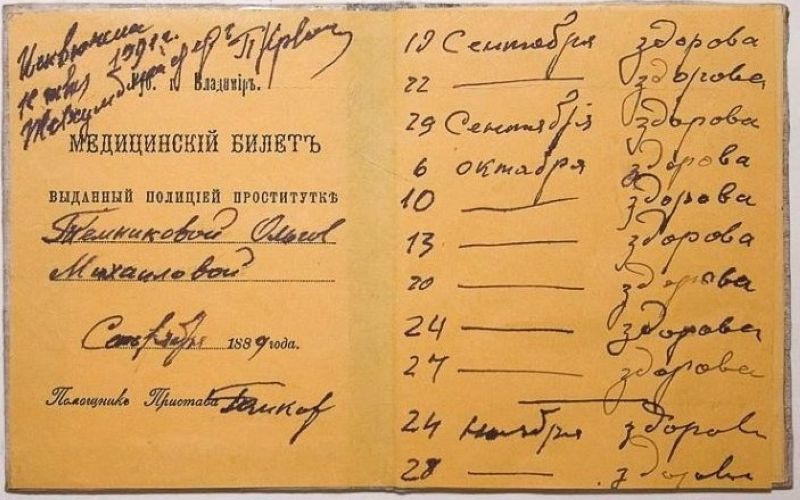 1891 г.
г. Владимiръ.
МЕДИЦИНСКIЙ БИЛЕТЪ
ВЫДАННЫЙ ПОЛИЦIЕЙ ПРОСТИТУТКѢ
Темниковой Ольгѣ
Михаиловой
Сентября 1889 года.
Помощникъ Пристава
19 Сентября здорова
22 — здорова
29 Сентября здорова
6 октября здорова
10 — здорова
13 — здорова
20 — здорова
24 — здорова
27 — здорова
24 ноября здорова
28 — здорова